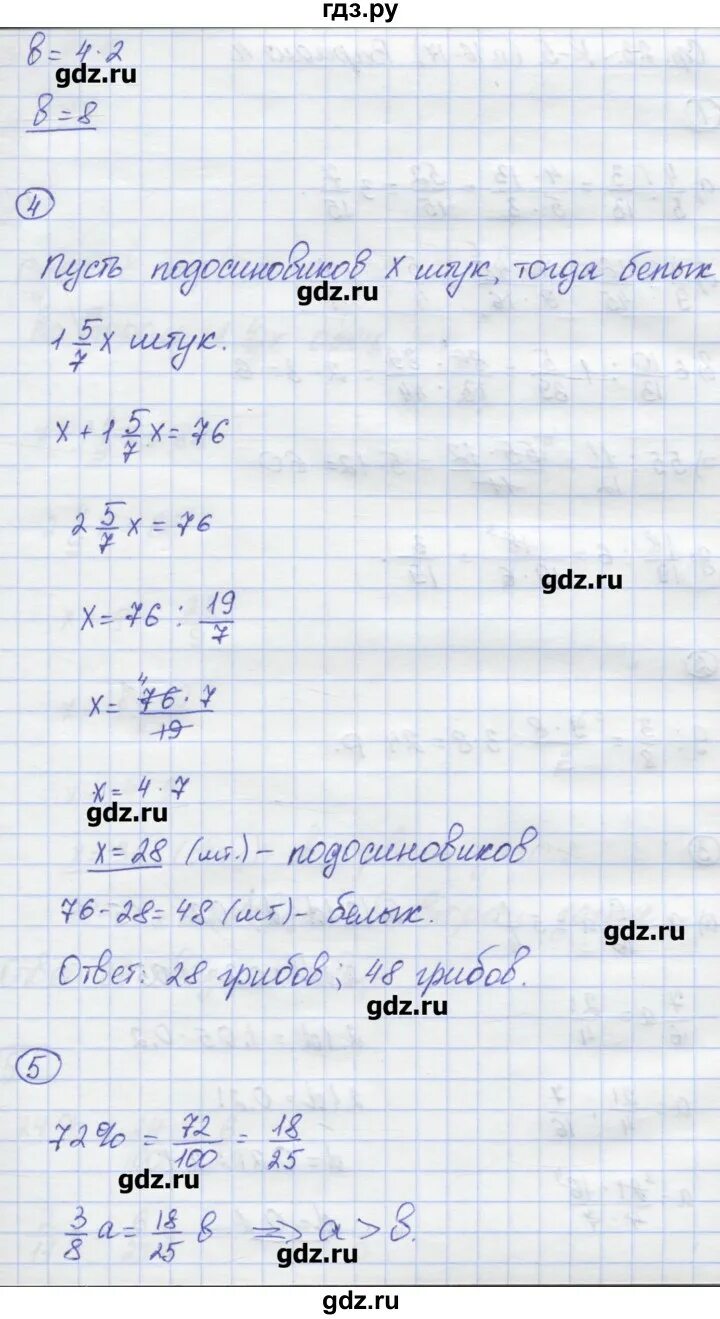 гдз.ру
в = 4 · 2
gdz.ru
в = 8
4
Пусть подосиновиков х штук, тогда белых
gdz.ru
1 5/7 х штук.
х + 1 5/7 х = 76
2 5/7 х = 76
gdz.ru
х = 76 : 19/7
х = 76 · 7 / 19
4
х = 4 · 7
gdz.ru
х = 28 (шт.) – подосиновиков
76 – 28 = 48 (шт) – белых.
gdz.ru
Ответ: 28 грибов; 48 грибов.
gdz.ru
5
72% = 72/100 = 18/25
gdz.ru
3/8 а = 18/25 в ⇒ а > в.
gdz.ru
gdz.ru